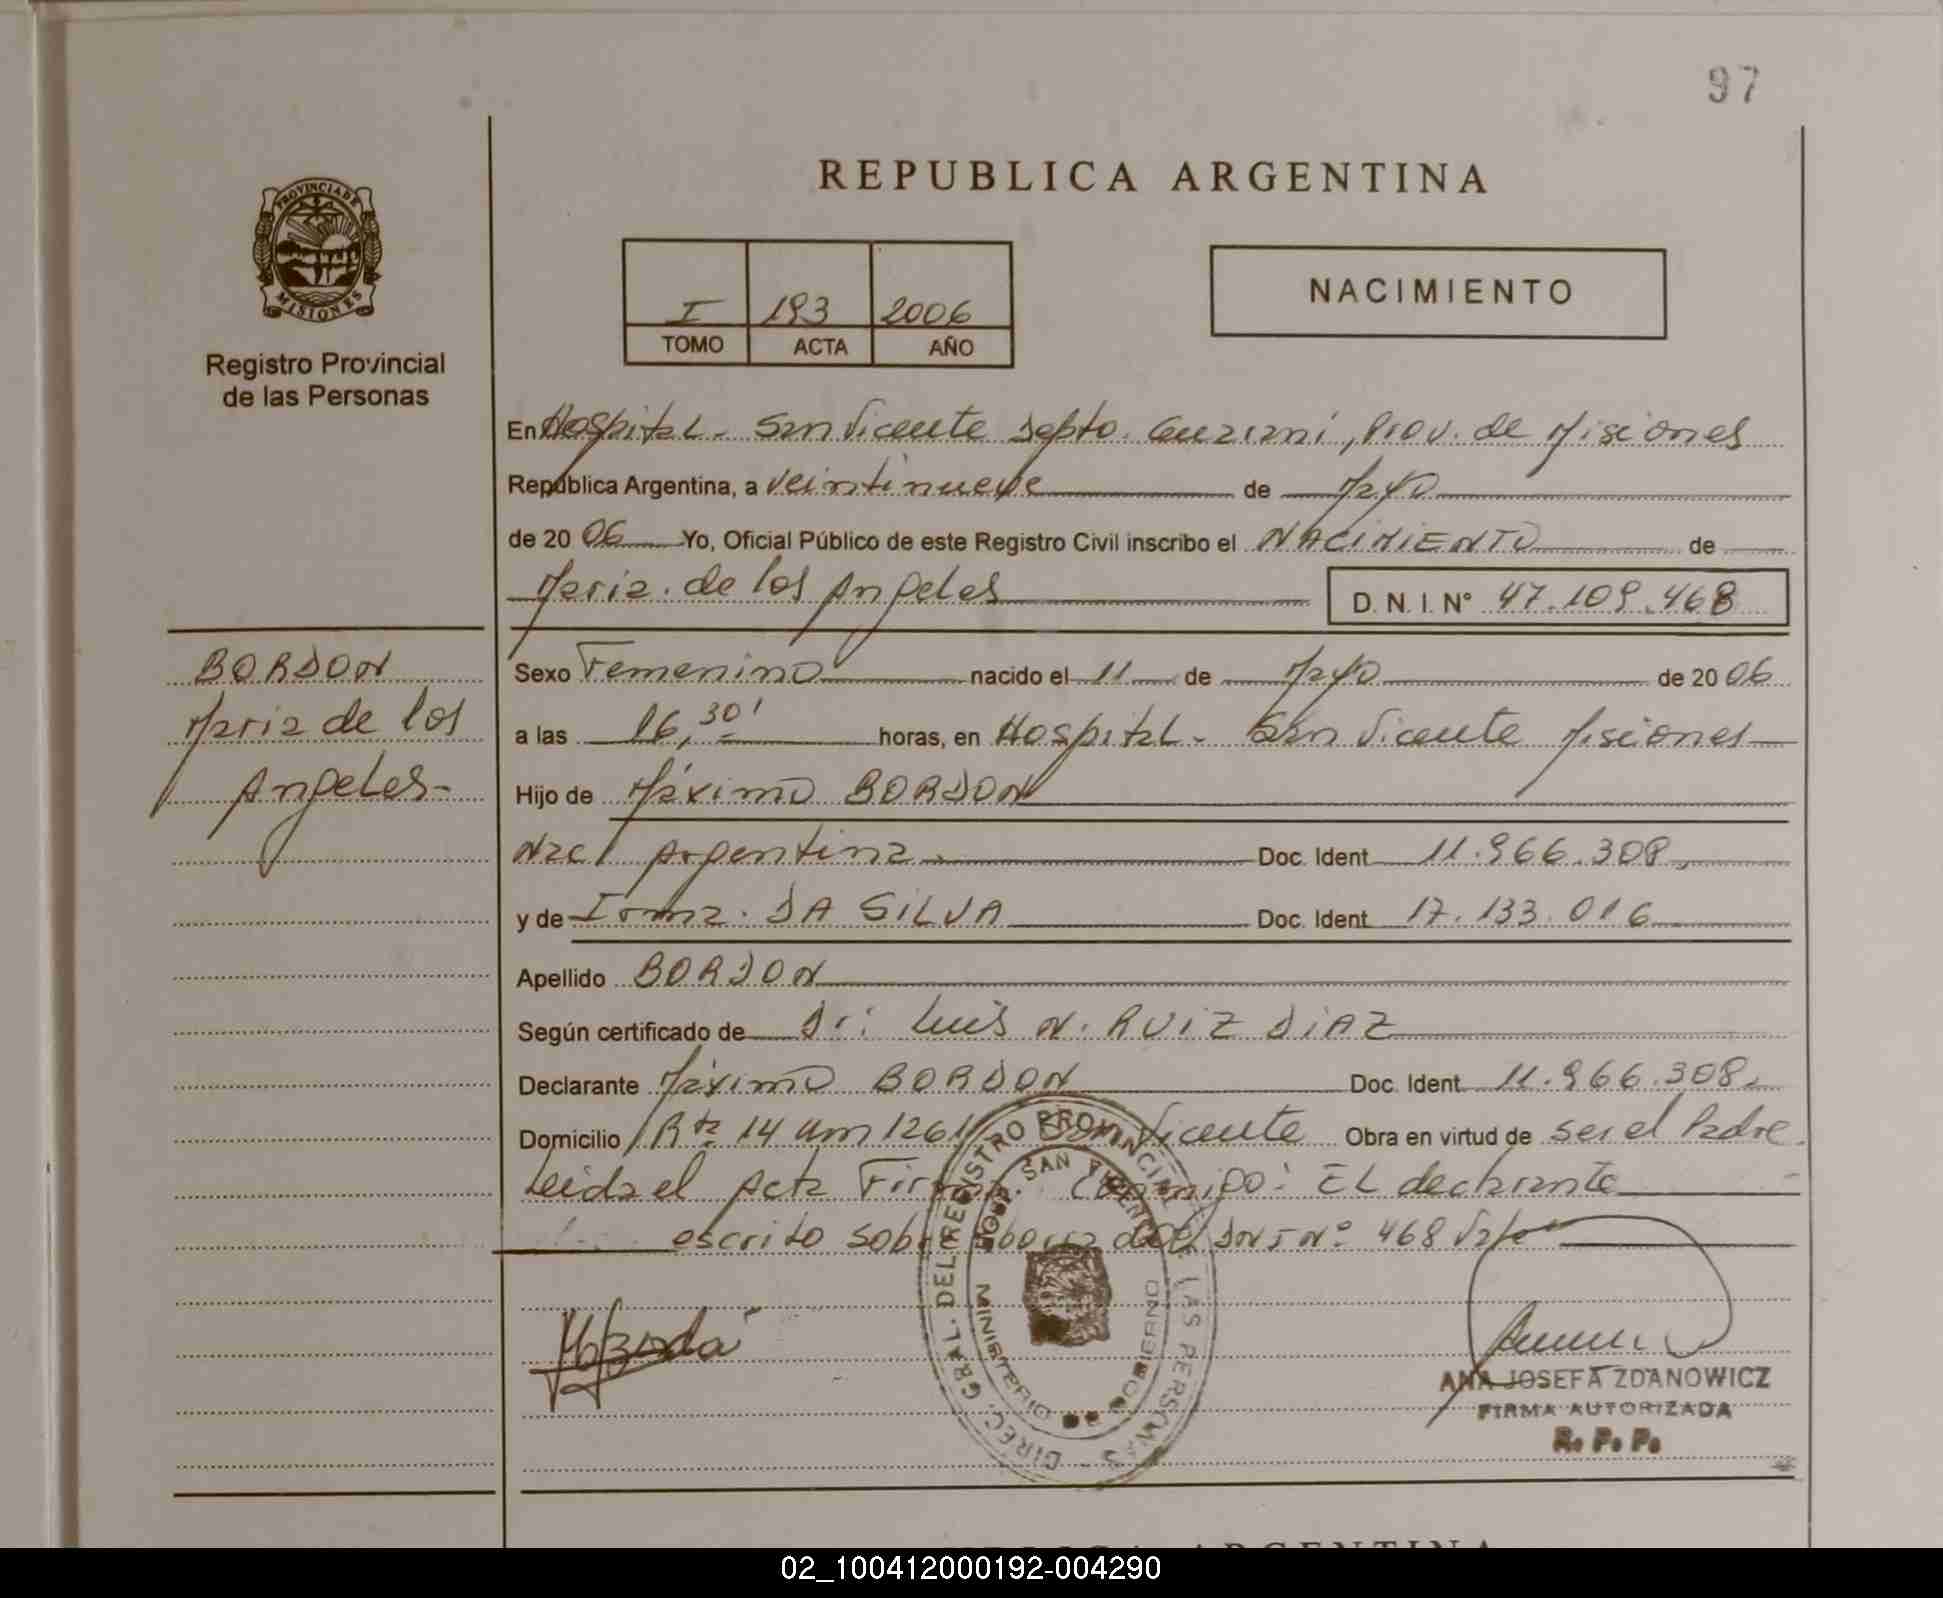 97
REPUBLICA ARGENTINA
PROVINCIA DE
MISIONES
Registro Provincial
de las Personas
I 193 2006
TOMO ACTA AÑO
NACIMIENTO
En Hospital - San Vicente Depto. Guarani, Prov. de Misiones
República Argentina, a veintinueve de Mayo
de 20 06 Yo, Oficial Público de este Registro Civil inscribo el NACIMIENTO de
Maria de los Angeles D. N. I. N° 47.109.468
BORDON
Maria de los
Angeles-
Sexo Femenino nacido el 11 de Mayo de 20 06
a las 16,30' horas, en Hospital - San Vicente Misiones
Hijo de Máximo BORDON
Nac Argentina. Doc. Ident. 11.966.308.
y de Irma DA SILVA Doc. Ident. 17.133.016
Apellido BORDON
Según certificado de Dr: Luis N. RUIZ DIAZ
Declarante Máximo BORDON Doc. Ident. 11.966.308.
Domicilio Rta 14 Km 1261 San Vicente Obra en virtud de ser el Padre.
Leida el Acta Firma Conmigo: EL declarante
escrito sobre DNI N° 468 Vale
DIREC. GRAL. DEL REGISTRO PROVINCIAL DE LAS PERSONAS
SAN VICENTE
MINISTERIO DE GOBIERNO
ANA JOSEFA ZDANOWICZ
FIRMA AUTORIZADA
R. P. P.
ARGENTINA
02_100412000192-004290